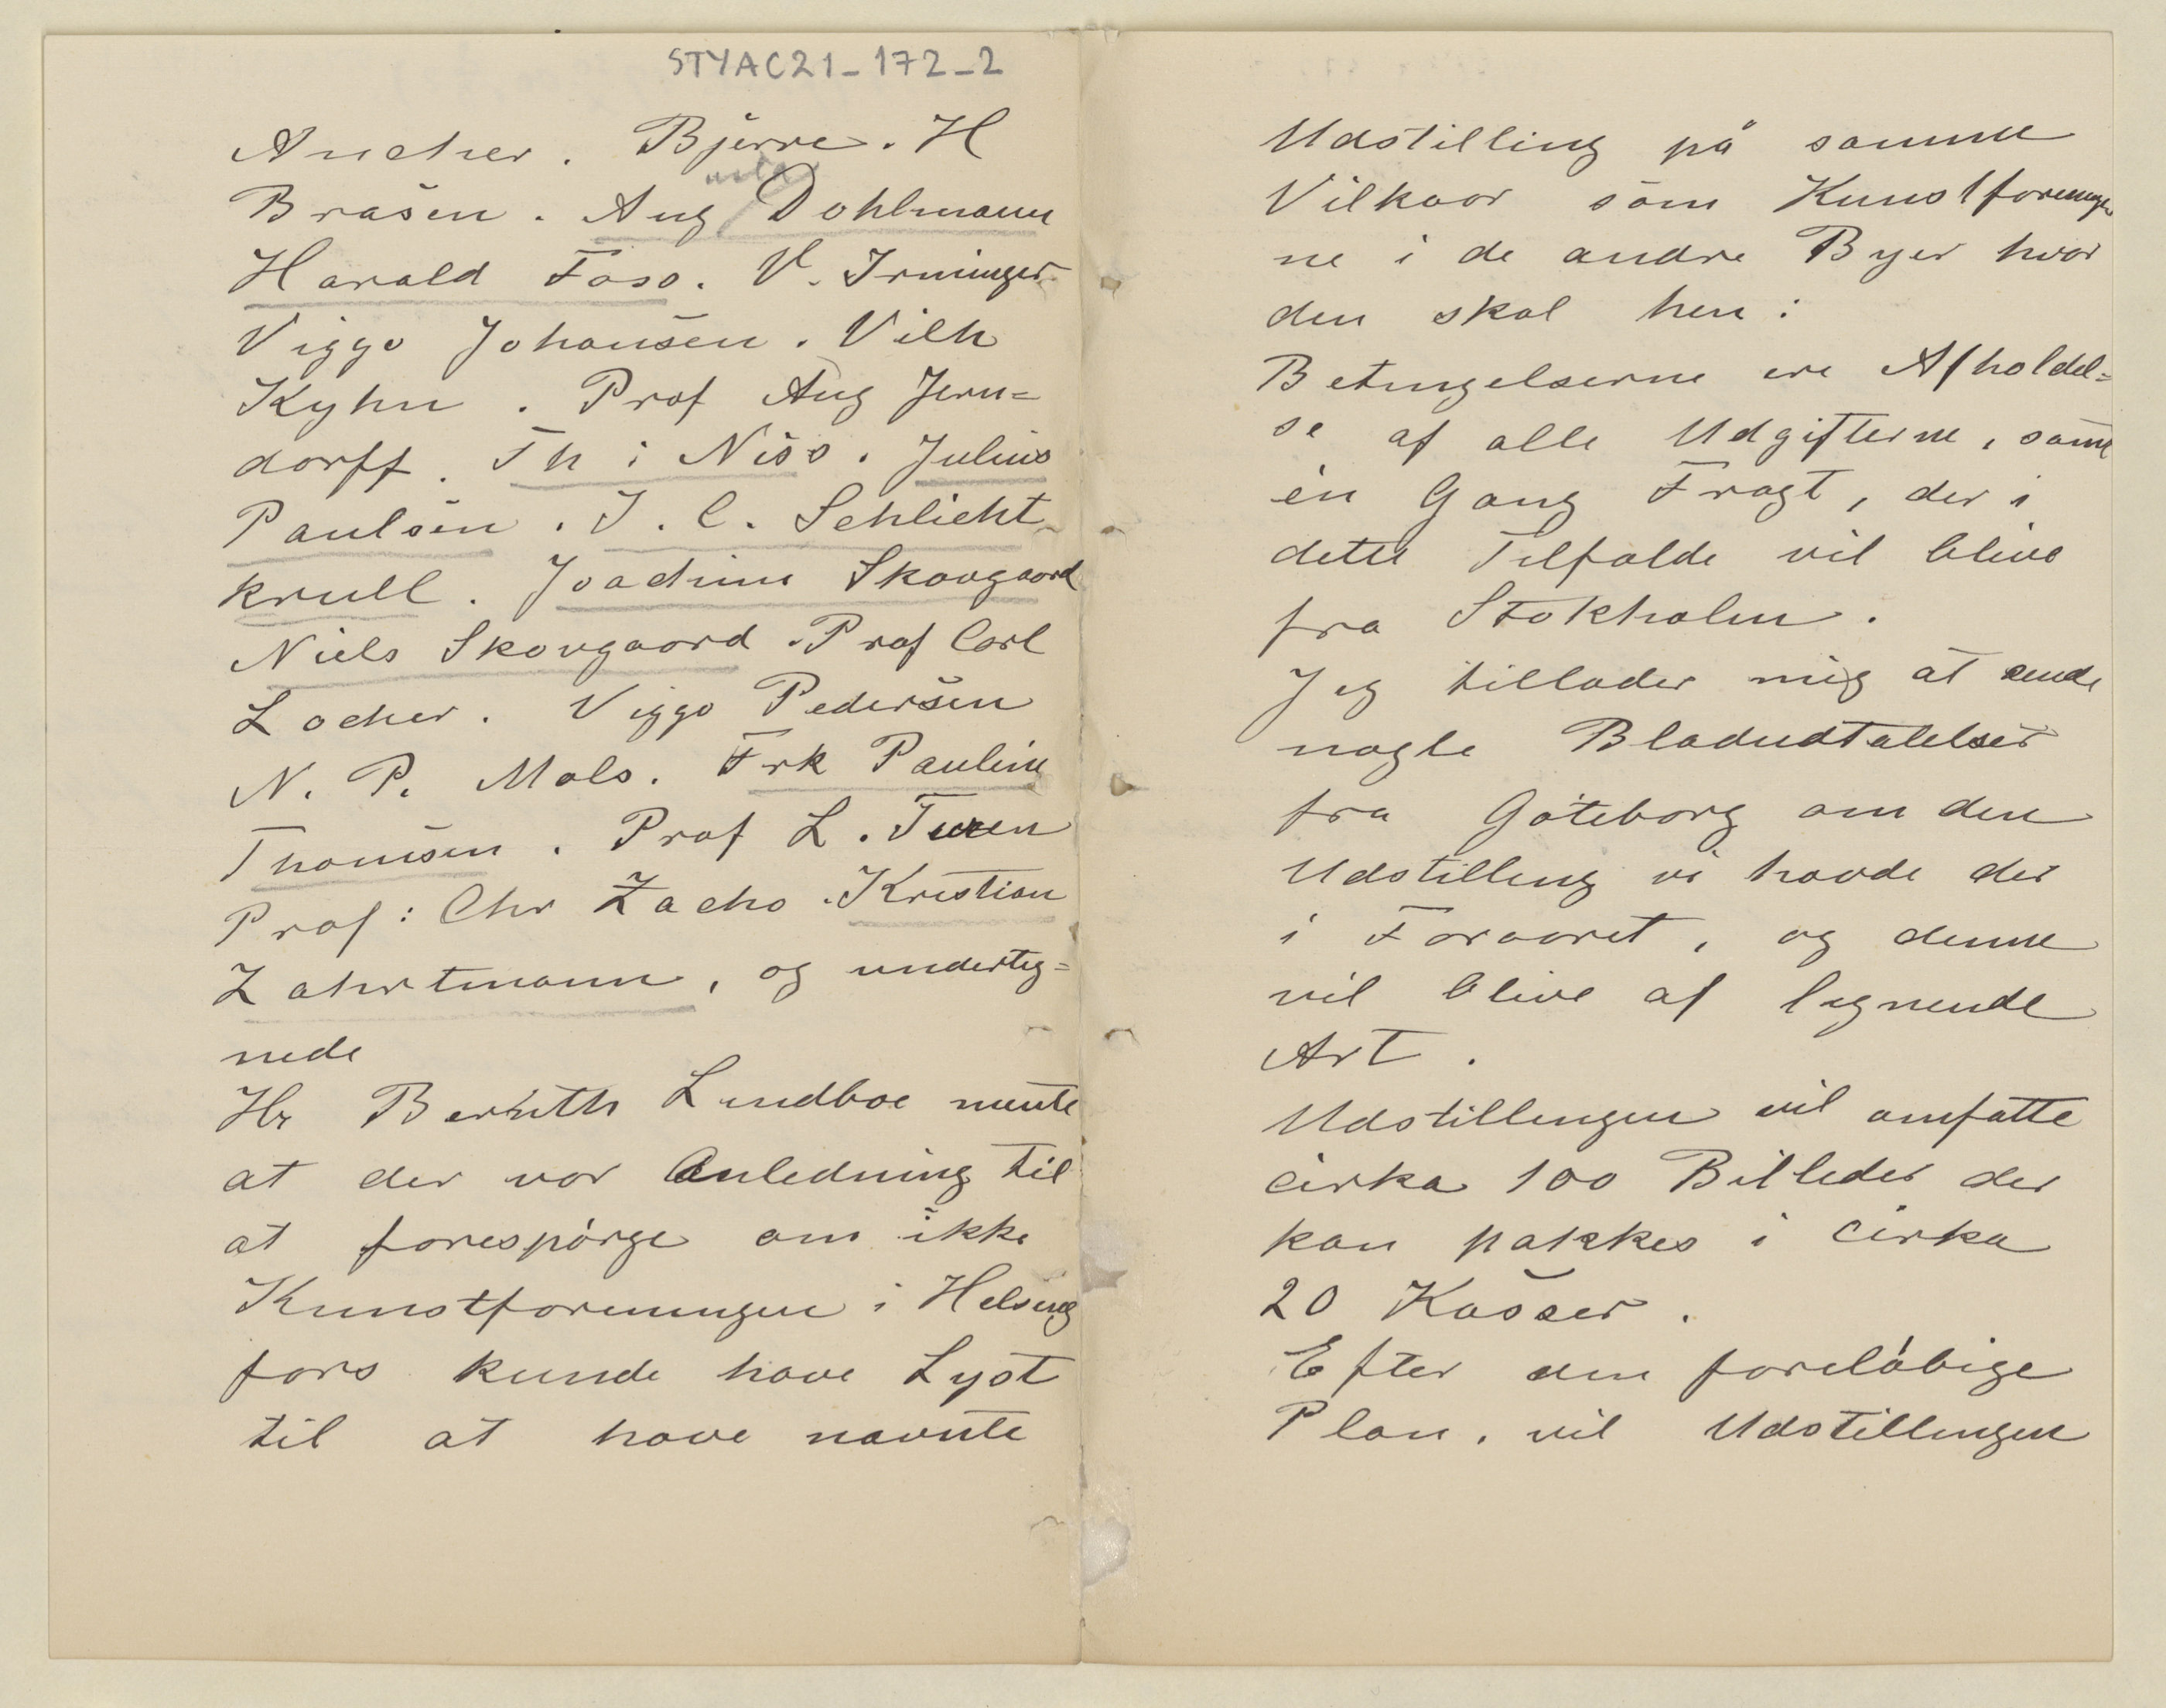 STYAC21-172-2
Ancher. Bjerre. H
Brasen. Aug Dohlmann
Harald Foss. V. Irminger
Viggo Johansen. Vilh
Kyhn. Prof Aug Jern=
dorff. Th: Niss. Julius
Paulsen. J. C. Schlicht
krull. Joachim Skovgaard
Niels Skovgaard. Prof Carl
Locher. Viggo Pedersen
N. P. Mols. Frk Pauline
Thomsen. Prof L. Tuxen
Prof: Chr Zacho. Kristian
Zahrtmann, og underteg=
nede
Hr Lindboe mente
at der var Anledning til
at forespörge om ikke
Kunstforeningen i Helsing
fors kunde have Lyst
til at have nævnte
Udstilling på samme
Vilkaar som Kunstforeninger
ne i de andre Byer hvor
den skal hen:
Betingelserne ere Afholdel=
se af alle Udgifterne, samt
én Gang Fragt, der i
dette Tilfælde vil blive
fra Stokholm.
Jeg tillader mig at sende
nogle Bladudtalelser
fra Göteborg om den
Udstilling vi havde der
i Foraaret, og denne
vil blive af lignende
Art.
Udstillingen vil omfatte
cirka 100 Billeder der
kan pakkes i cirka
20 Kasser.
Efter den forelöbige
Plan, vil Udstillingen